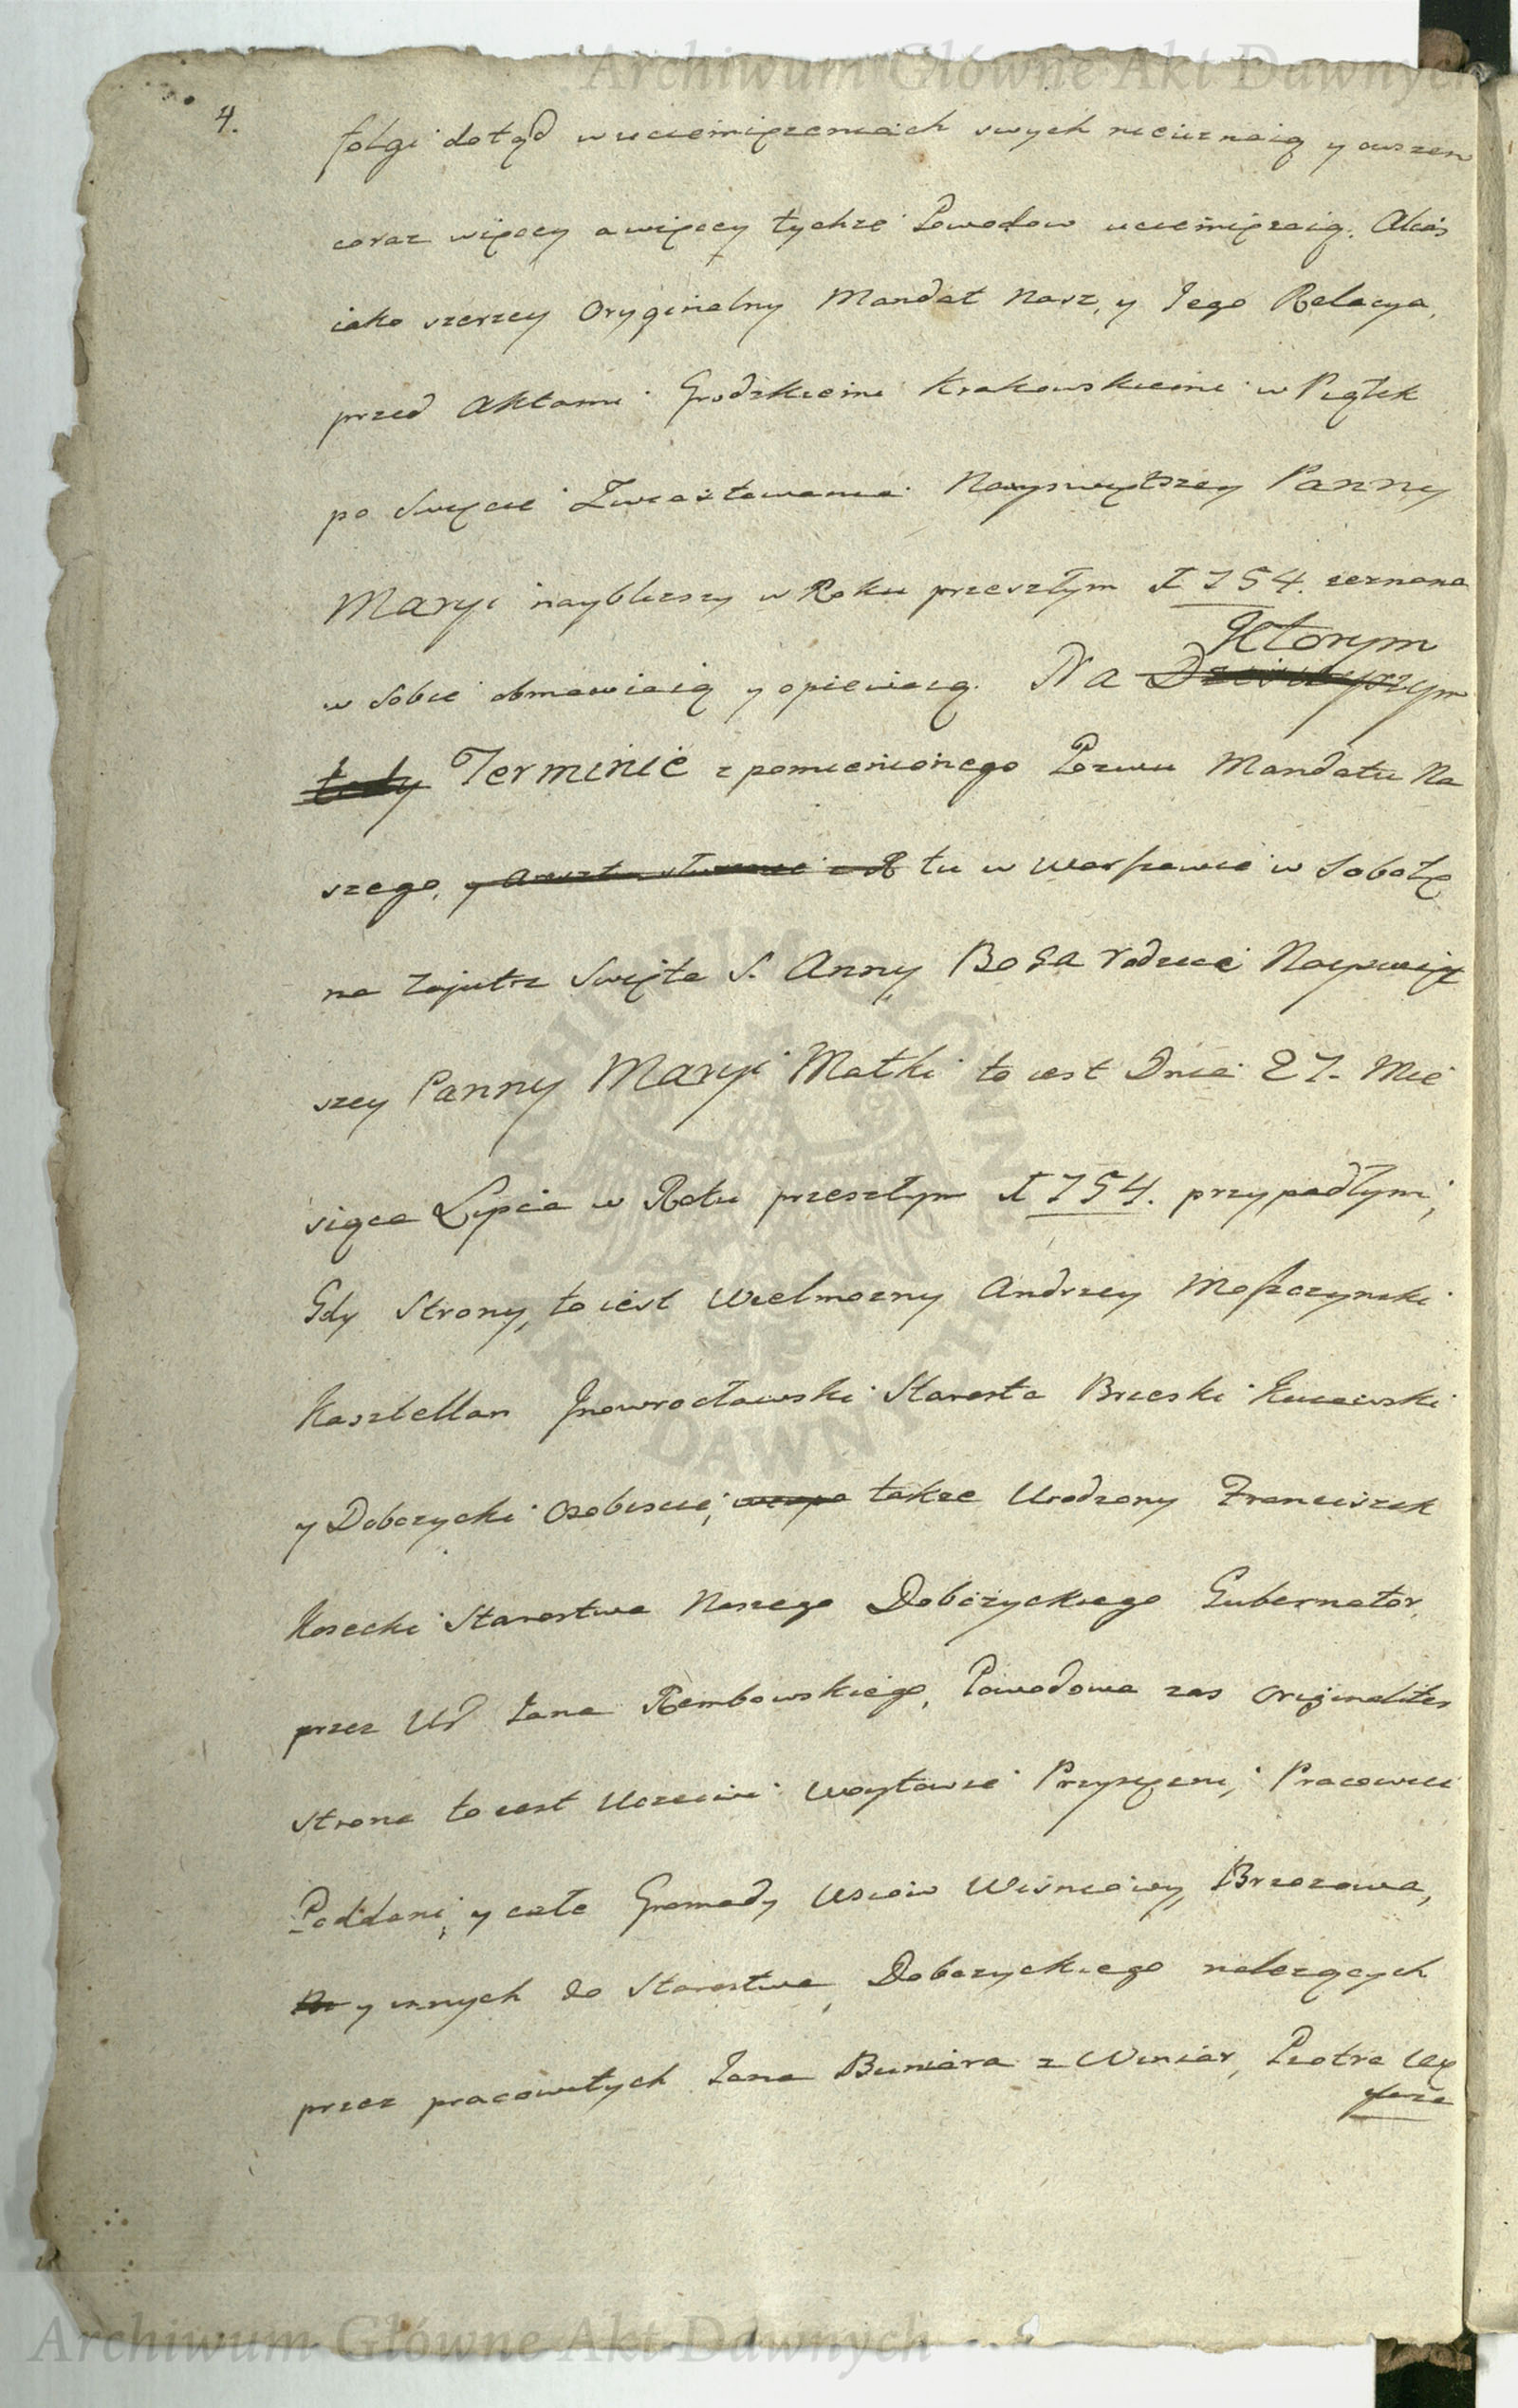 Archiwum Główne Akt Dawnych
4.
folgi dotąd w uciemiężeniach swych nieuznaią y owszem
coraz więcey a więcey tychże Powodow uciemiężaią. Akcis
iako szerzey Oryginalny Mandat Nasz, y Jego Relacya,
przed Aktami Grodzkiemi Krakowskiemi w Piątek
po Swięcie Zwiastowania Nayswiętszey Panny
Maryi naybliższy w Roku przeszłym 1754. zeznana
w Sobie obmawiaią y opiewaią. Na Dzisieyszym
Ktorym
tedy Terminie z pomienionego Pozwu Mandatu Na
szego, tu w Warszawie w Sobotę
na Zajutrz Swięta S. Anny Boga rodzici Nayswięt
szey Panny Maryi Matki to iest Dnia 27. Mie
siąca Lipca w Roku przeszłym 1754. przypadłym,
Gdy Strony, to iest Wielmozny Andrzey Moszczynski
Kasztellan Jnowrocławski Starosta Brzeski Kuiawski
y Dobczycki Osobiscie, także Urodzony Franciszek
Kosecki Starostwa Naszego Dobczyckiego Gubernator,
przez Ur Jana Rembowskiego, Powodowa zas originaliter
strona to iest Uczciwi Woytowie Przysiężni, Pracowici
Poddani, y całe Gromady Wsiow Wiśniowy, Brzozowa,
y innych do Starostwa Dobczyckiego należących
przez pracowitych Jana Buniara z Winiar, Piotra Wę
Archiwum Główne Akt Dawnych